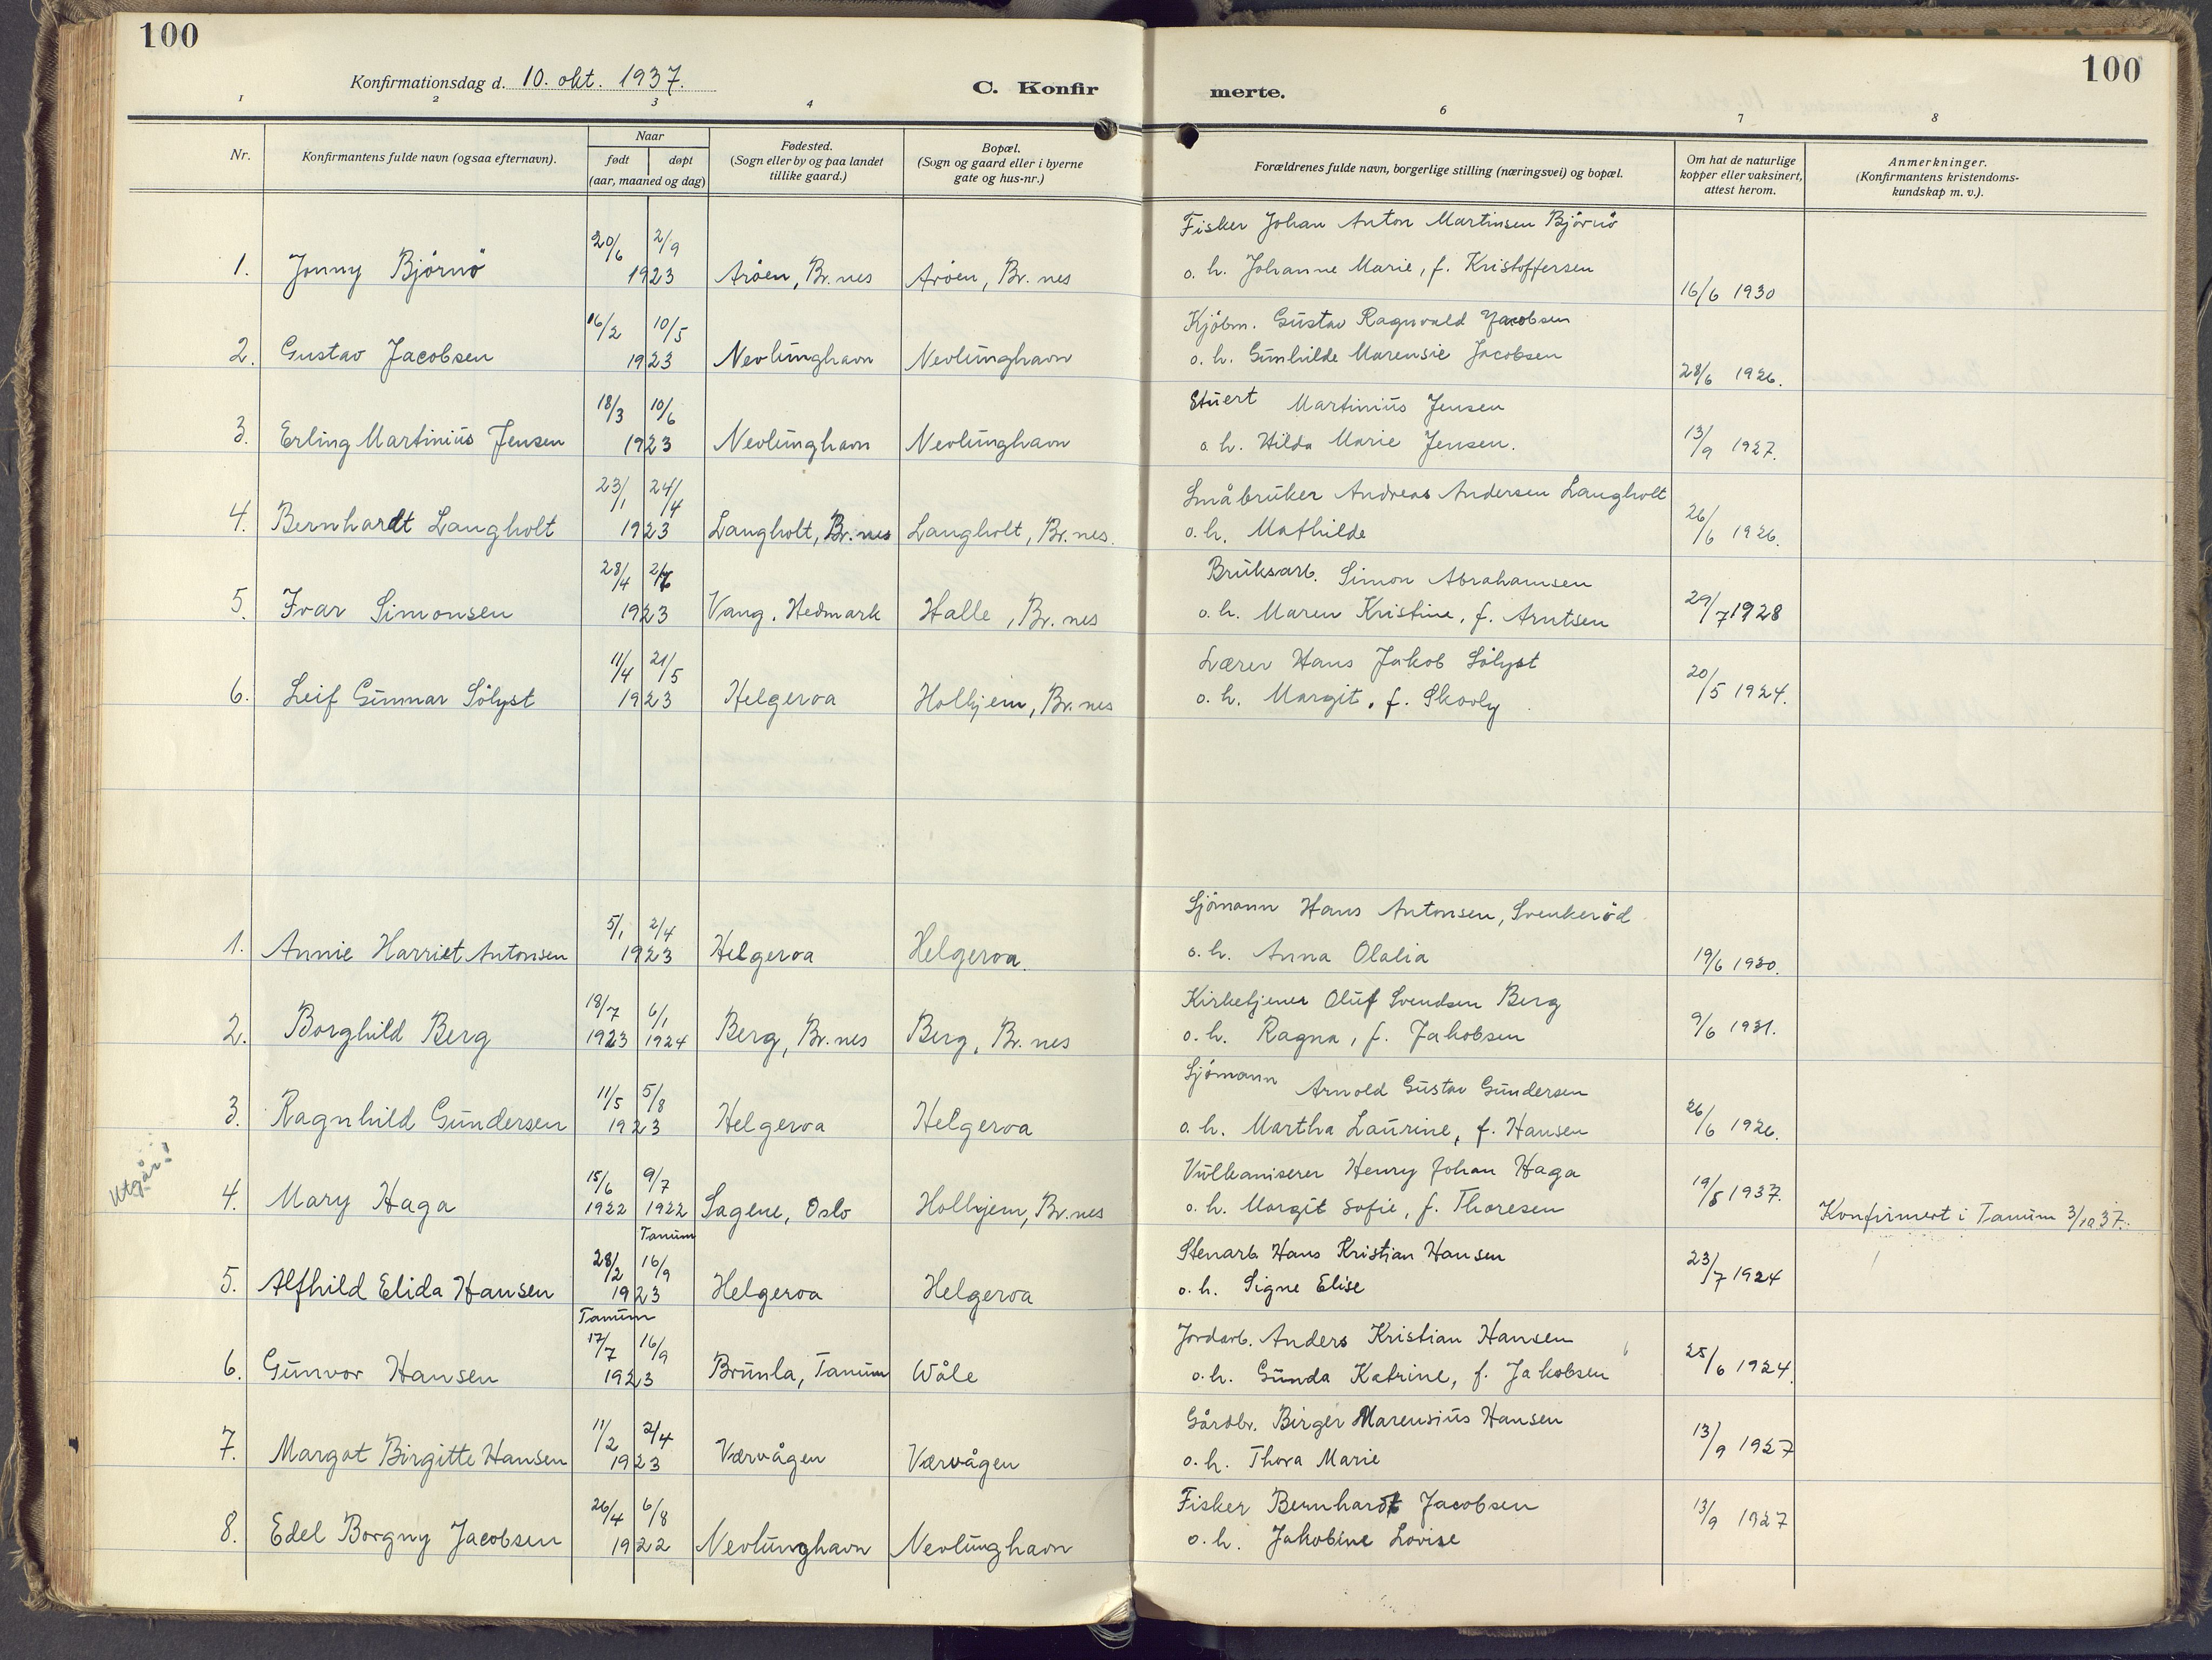 100
100
Konfirmationsdag d. 10. okt. 1937.
C. Konfir merte.
1 2 3 4 6 7 8
Nr.
Konfirmantens fulde navn (ogsaa efternavn).
Naar
født døpt
(aar, maaned og dag)
Fødested.
(Sogn eller by og paa landet
tillike gaard.)
Bopæl.
(Sogn og gaard eller i byerne
gate og hus-nr.)
Forældrenes fulde navn, borgerlige stilling (næringsvei) og bopæl.
Om hat de naturlige
kopper eller vaksinert,
attest herom.
Anmerkninger.
(Konfirmantens kristendoms-
kundskap m. v.).
20/6 2/9 Fisker Johan Anton Martinsen Bjørnö
1. Jonny Björnö 1923 Aröen, Br. nes Aröen, Br. nes o. h. Johanne Marie, f. Kristoffersen 16/6 1930
16/2 10/5 Kjöbm. Gustav Ragnvald Jacobsen
2. Gustav Jacobsen 1923 Nevlunghavn Nevlunghavn o. h. Gunhilde Marensie Jacobsen 28/6 1926.
18/3 10/6 Stuert Martinius Jensen
3. Erling Martinius Jensen 1923 Nevlunghavn Nevlunghavn o. h. Hilda Marie Jensen. 13/9 1927.
23/1 24/4 Småbruker Andreas Andersen Langholt
4. Bernhardt Langholt 1923 Langholt, Br. nes Langholt, Br. nes. o. h. Mathilde 26/6 1926.
28/4 Bruksarb. Simon Abrahamsen
5. Ivar Simonsen 1923 Vang. Hedmark Halle, Br. nes o. h. Maren Kristine, f. Arntsen 29/7 1928
11/4 21/5 Lærer Hans Jakob Sölyst
6. Leif Gunnar Sölyst 1923 Helgeroa Holhjem, Br. nes o. h. Margit, f. Skovly 20/5 1924.
5/1 2/4 Sjömann Hans Antonsen, Svenkeröd
1. Annie Harriet Antonsen 1923 Helgeroa Helgeroa. o. h. Anna Olalia 19/6 1930.
18/7 6/1 Kirketjener Oluf Svendsen Berg
2. Borghild Berg 1923 1924 Berg, Br. nes Berg, Br. nes o. h. Ragna, f. Jakobsen 9/6 1931.
11/5 5/8 Sjömann Arnold Gustav Gundersen
3. Ragnhild Gundersen 1923 Helgeroa Helgeroa o. h. Martha Laurine, f. Hansen 26/6 1926.
Utgår!
15/6 9/7 Vulkaniserer Henry Johan Haga
4. Mary Haga 1922 1922 Sagene, Oslo Holhjem, Br. nes o. h. Margit Sofie, f. Thoresen 19/5 1937. Konfirmert i Tanum 3/10 37.
Tanum
28/2 16/9 Stenarb. Hans Kristian Hansen
5. Alfhild Elida Hansen 1923 Helgeroa Helgeroa o. h. Signe Elise 23/7 1924
Tanum
17/7 16/9 Jordarb. Anders Kristian Hansen
6. Gunvor Hansen 1923 Brunla, Tanum Wåle o. h. Gunda Katrine, f. Jakobsen 25/6 1924.
11/2 2/4 Gårdbr. Birger Marensius Hansen
7. Margot Birgitte Hansen 1923 Værvågen Værvågen o. h. Thora Marie 13/9 1927
26/4 6/8 Fisker Bernhardt Jacobsen
8. Edel Borgny Jacobsen 1922 Nevlunghavn Nevlunghavn o. h. Jakobine Lovise 13/9 1927